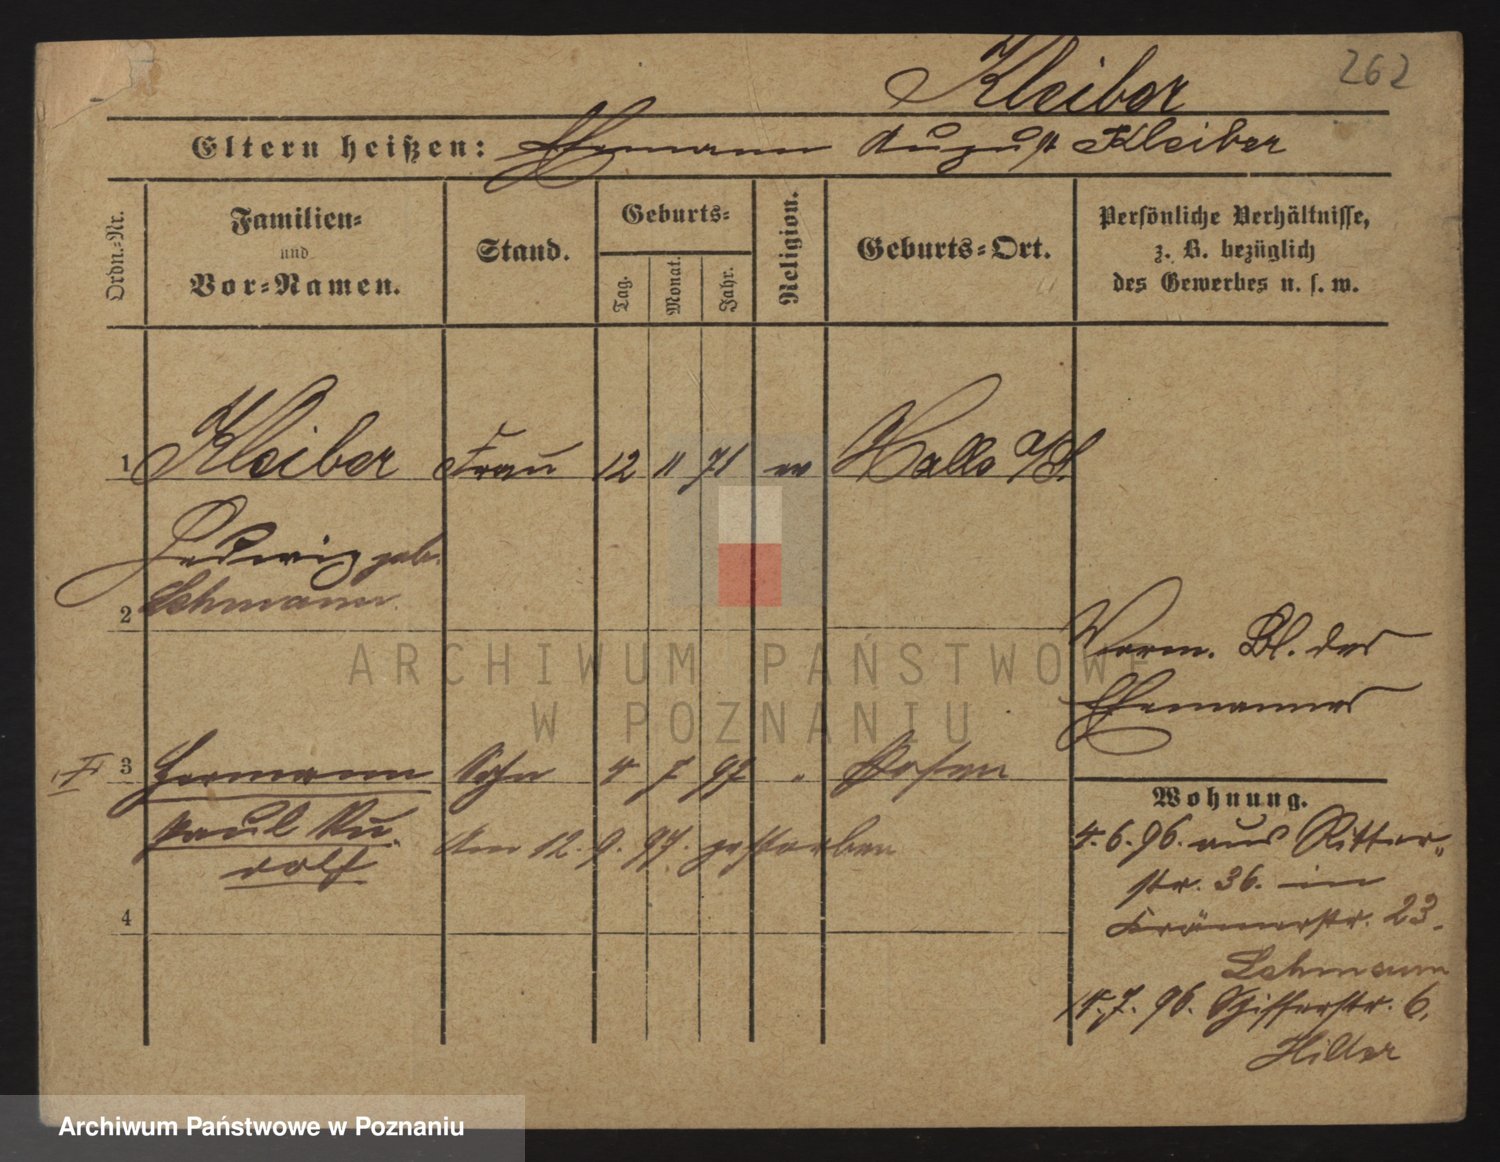 262
Kleiber
Eltern heißen: Ehemann August Kleiber
Ordn.=Nr.
Familien=
und
Vor=Namen.
Stand.
Geburts=
Tag.
Monat.
Jahr.
Religion.
Geburts=Ort.
Persönliche Verhältnisse,
z. B. bezüglich
des Gewerbes u. s. w.
1 Kleiber Frau 12 11 71 ev Halle a/S.
Hedwig geb.
2 Lehmann
Verm. Bl. des
Ehemannes
3 Hermann Sohn 4 7 97 " Posen
Paul Ru-
dolf
Am 12. 9. 97. gestorben
4
Wohnung.
4. 6. 96. aus Ritter-
str. 36. in
Krämerstr. 23.
Lehmann
14. 7. 96. Schifferstr. 6.
Hiller
ARCHIWUM PAŃSTWOWE
W POZNANIU
Archiwum Państwowe w Poznaniu